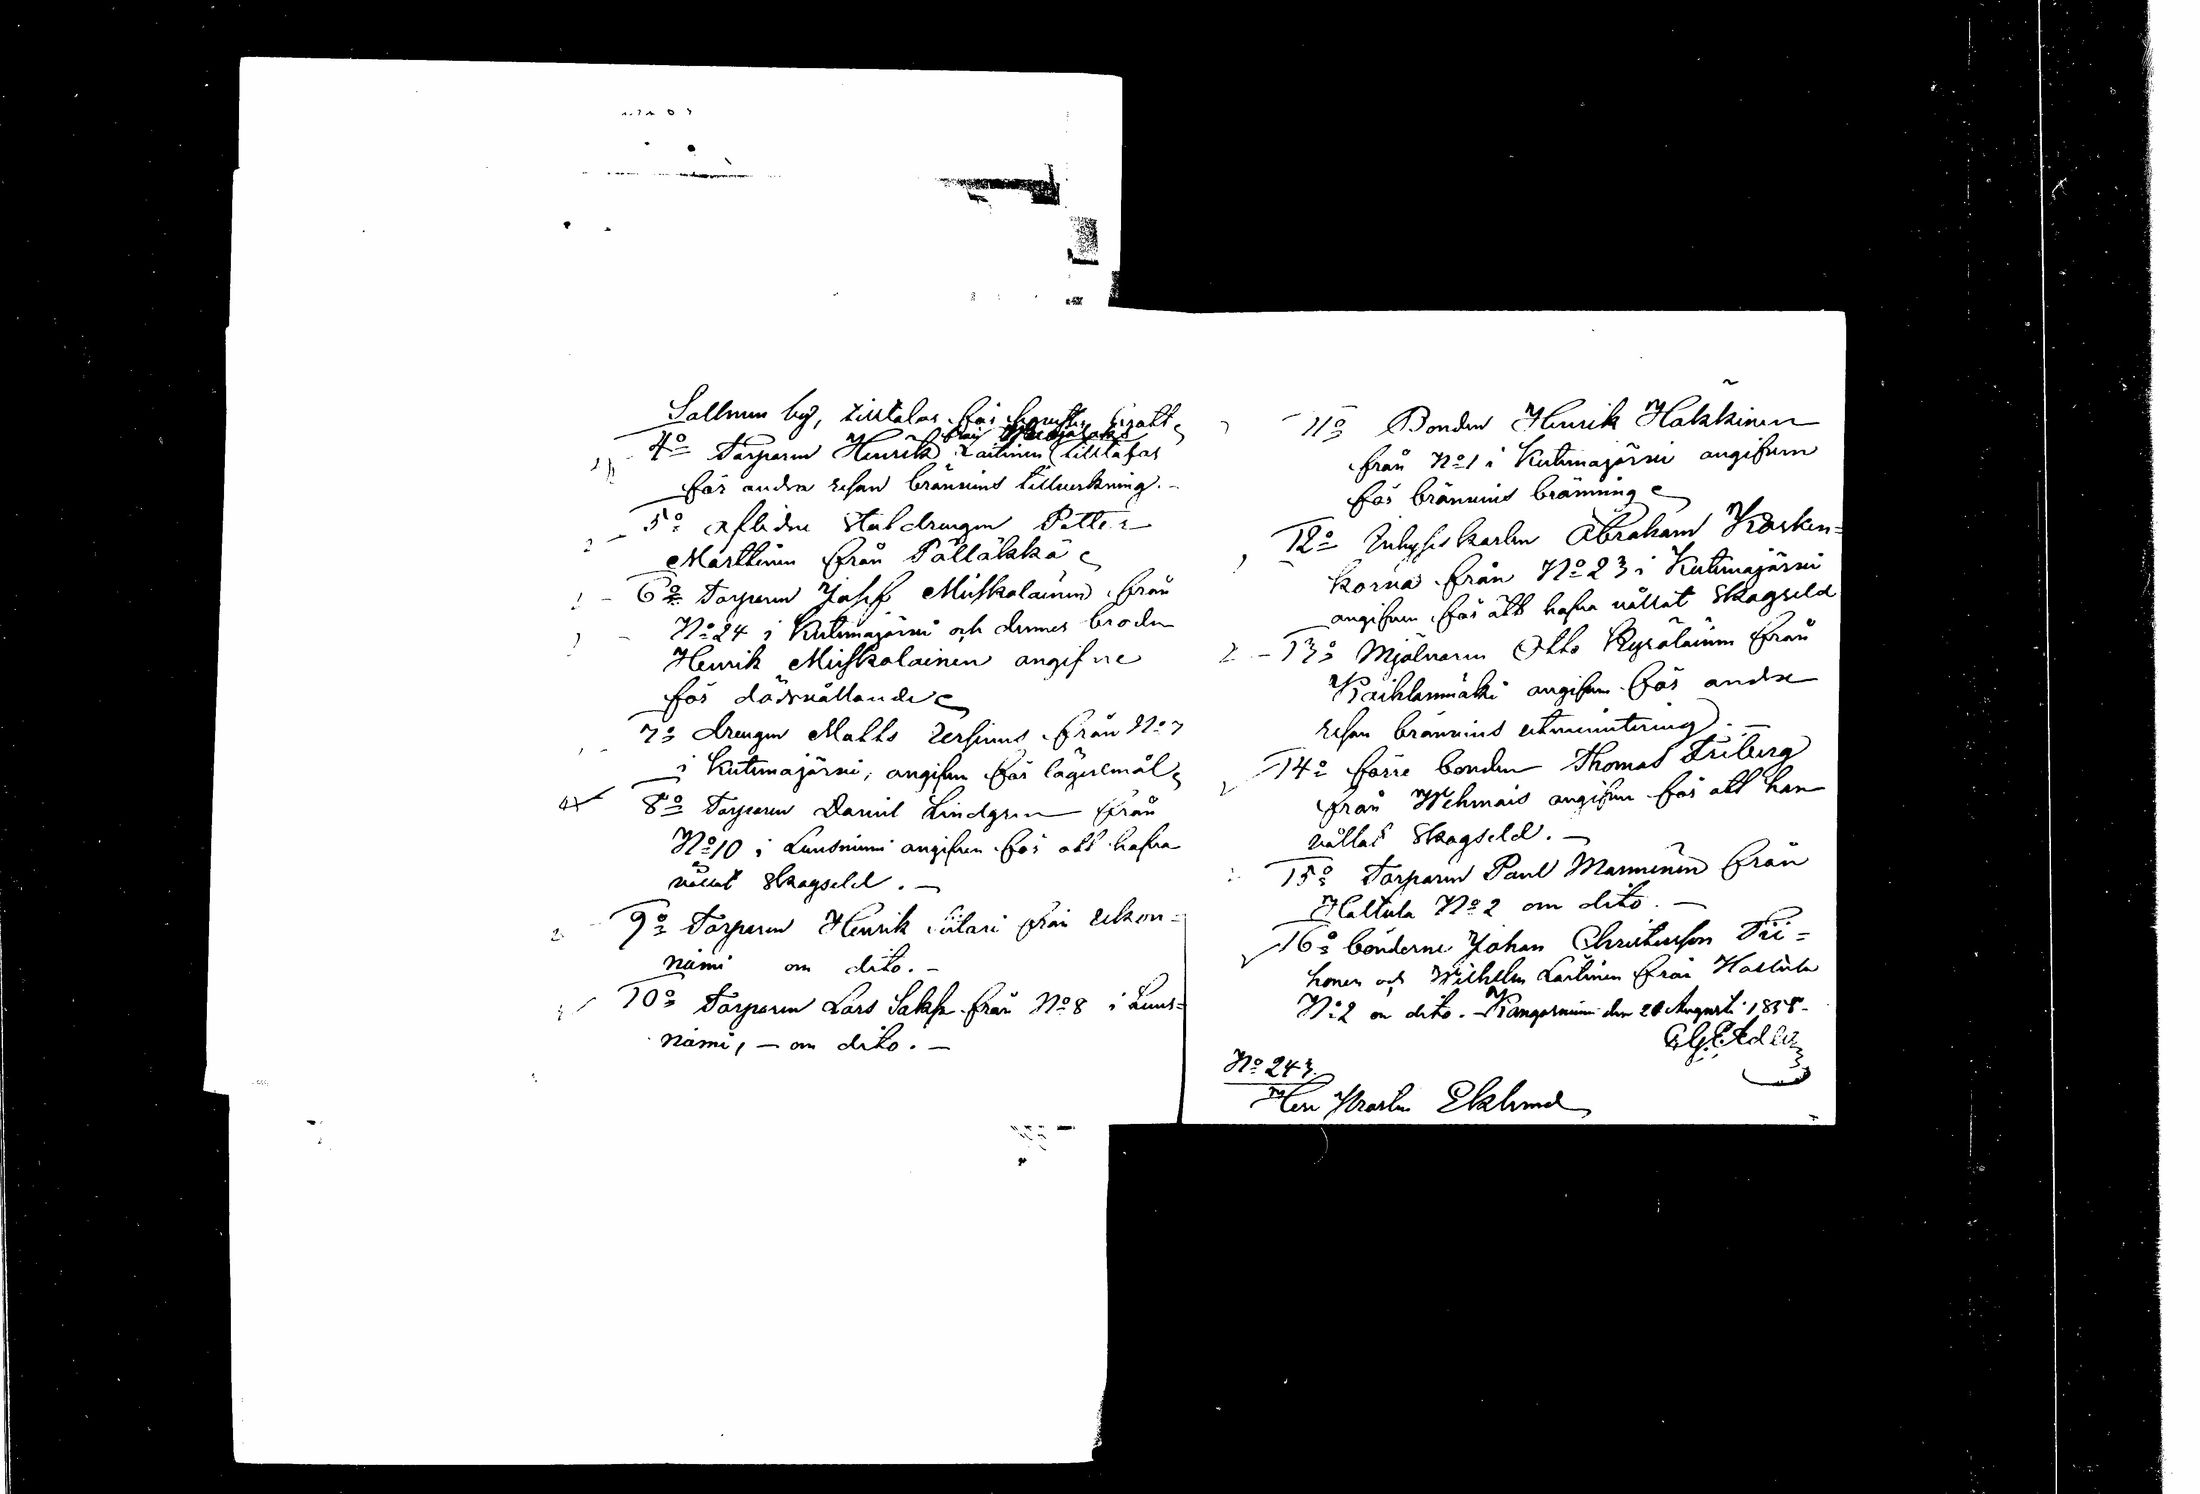 Sallmen by, tilltalas för
4o Torparen Henrik Laitinen tilltalas
för andra resan bränvins tillverkning. -
5o aflidne Staldrengen Petter
Marttinen från Pälläkkä
6o Torparen Josef Muskalainen från
No 24 i Kutemajärvi och dennes broder
Henrik Muskalainen angifne
för dödsvållande
7o drengen Matts Versinus från No 7
i Kutemajärvi, angifven för lägersmål
8o Torparen Daniel Lindgren från
No 10 i Luusniemi angifven för att hafva
vållat Skogseld. -
9o Torparen Henrik Siitari från Ukon=
niemi om dito. -
10o Torparen Lars Sakse från No 8 i Luus=
niemi, - om dito. -
11o Bonden Henrik Häkkinen
från No 1 i Kutemajärvi angifven
för bränvins bränning
12o Inhysis karlen Abraham Kosken=
korva från No 23 i Kutemajärvi
angifven för att hafva vållat Skogseld
2 - 13o Mjölnaren Otto Kyröläinen från
angifven för andra
resan bränvins utminutering. -
14o förre bonden Thomas Friberg
från Wehmais angifven för att han
vållat Skogseld. -
15o Torparen Paul Manninen från
Hallula No 2 om dito. -
16o bönderne Johan Christersson Tii=
honen och Wilhelm Laitinen från Hallula
No 2 om dito. - Kangasniemi den 20 Augusti 1858.
No 243.
Herr Eklund